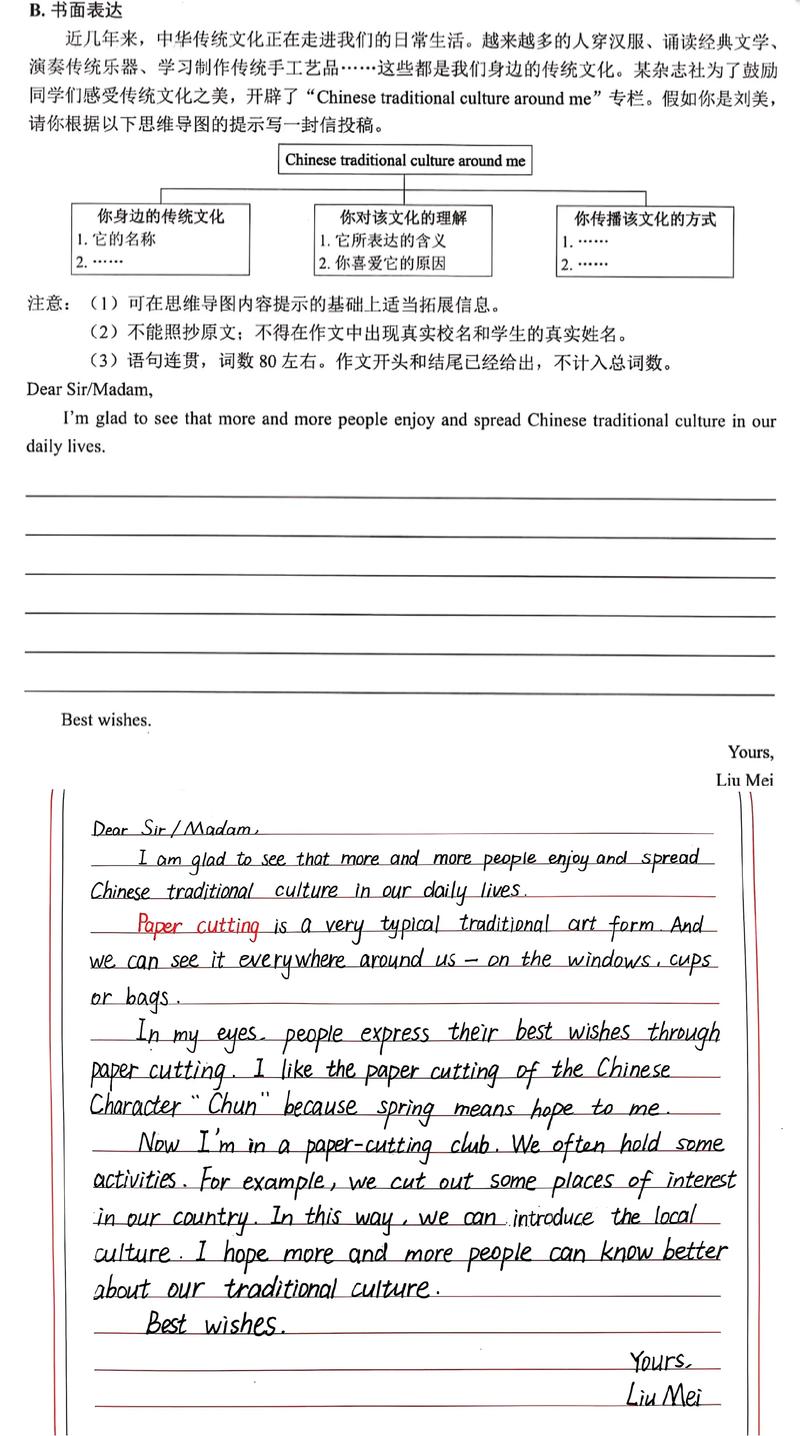 B. 书面表达
近几年来，中华传统文化正在走进我们的日常生活。越来越多的人穿汉服、诵读经典文学、
演奏传统乐器、学习制作传统手工艺品……这些都是我们身边的传统文化。某杂志社为了鼓励
同学们感受传统文化之美，开辟了“Chinese traditional culture around me”专栏。假如你是刘美，
请你根据以下思维导图的提示写一封信投稿。
Chinese traditional culture around me
你身边的传统文化
1. 它的名称
2. ……
你对该文化的理解
1. 它所表达的含义
2. 你喜爱它的原因
你传播该文化的方式
1. ……
2. ……
注意：（1）可在思维导图内容提示的基础上适当拓展信息。
（2）不能照抄原文；不得在作文中出现真实校名和学生的真实姓名。
（3）语句连贯，词数 80 左右。作文开头和结尾已经给出，不计入总词数。
Dear Sir/Madam,
I'm glad to see that more and more people enjoy and spread Chinese traditional culture in our
daily lives.
Best wishes.
Yours,
Liu Mei
Dear Sir/Madam,
I am glad to see that more and more people enjoy and spread
Chinese traditional culture in our daily lives.
Paper cutting is a very typical traditional art form. And
we can see it everywhere around us – on the windows, cups
or bags.
In my eyes. people express their best wishes through
paper cutting. I like the paper cutting of the Chinese
Character "Chun" because spring means hope to me.
Now I'm in a paper-cutting club. We often hold some
activities. For example, we cut out some places of interest
in our country. In this way, we can introduce the local
culture. I hope more and more people can know better
about our traditional culture.
Best wishes.
Yours,
Liu Mei